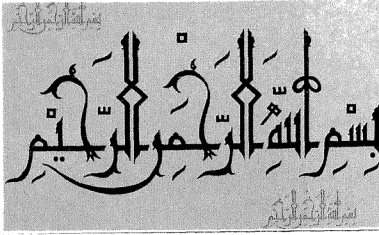 بسم الله الرحمن الرحيم
بِسْمِ اللّٰهِ الرَّحْمٰنِ الرَّحِيْمِ
بسم الله الرحمن الرحيم